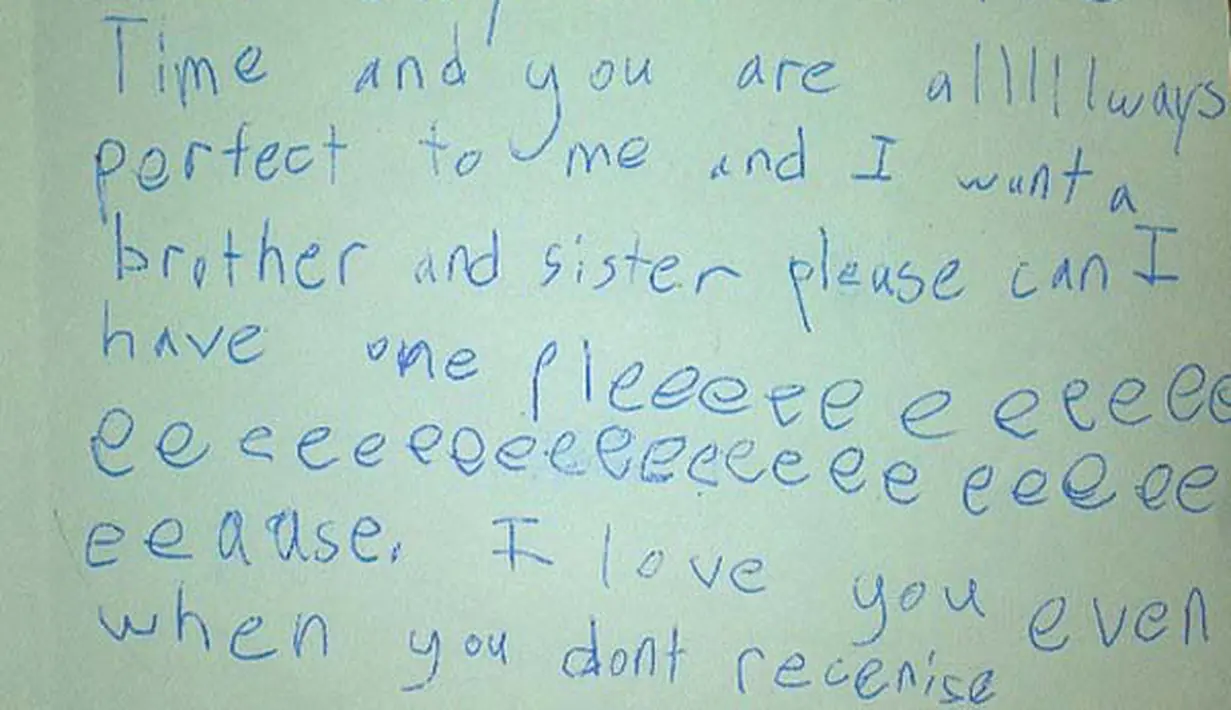 Time and you are allllllways
perfect to me and I want a
brother and sister please can I
have one pleeeeee e eeeeee
ee ceeeeeeeeeeeeeeeee eeeee
eeaause. I love you even
when you dont recenise